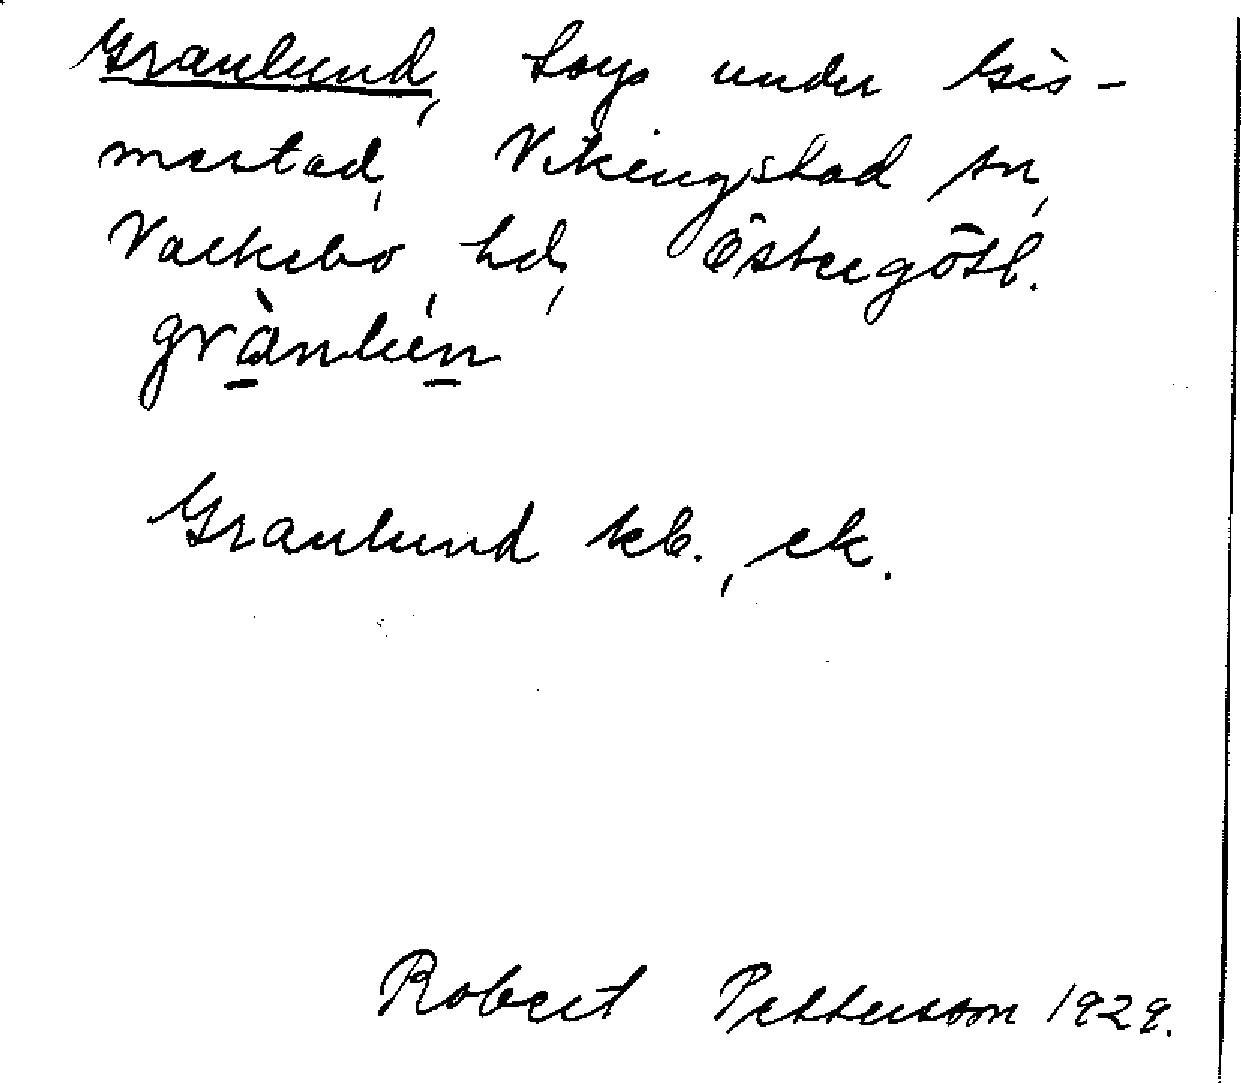 Granlund, torp under Gis-
mestad, Vikingstad sn,
Valkebo hd, Östergötl.
grànlœ́n
Granlund kb., ek.
Robert Pettersson 1929.